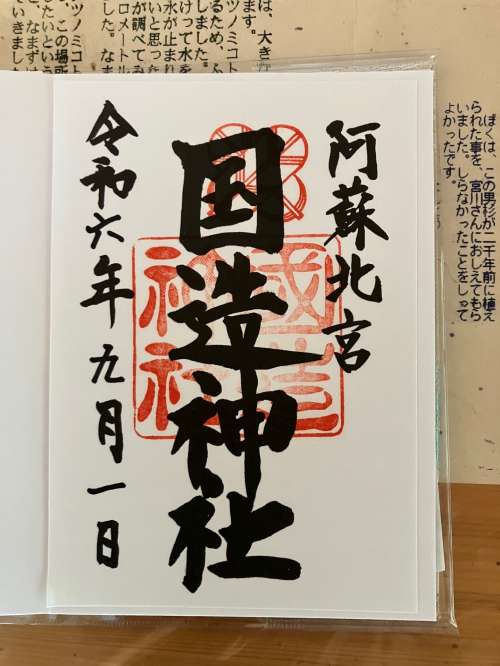 阿蘇北宮
国造神社
令和六年九月一日
國造
神社
ぼくは、この男杉が二千年前に植え
られた事を、宮川さんにおしえてもら
いました。しらなかったことをしって
よかったです。
は、大きな
ツノミコト
ます。
るため、ふ
しました。
けって水を
水が止まれ
いと思った
が調べてみ
ロメートル
した。なま
ツノミコト
したいという
、この場所
と、なまずは
いきました